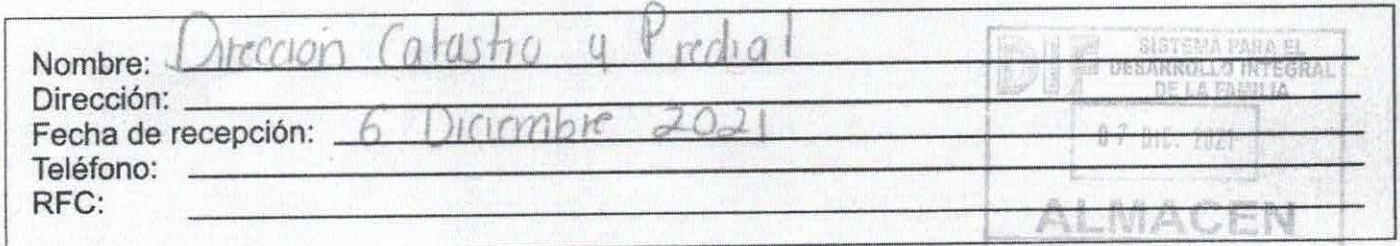 Nombre: Dirección Catastro y Predial
Dirección:
Fecha de recepción: 6 Diciembre 2021
Teléfono:
RFC:
DIF
SISTEMA PARA EL
DESARROLLO INTEGRAL
DE LA FAMILIA
07 DIC. 2021
ALMACEN